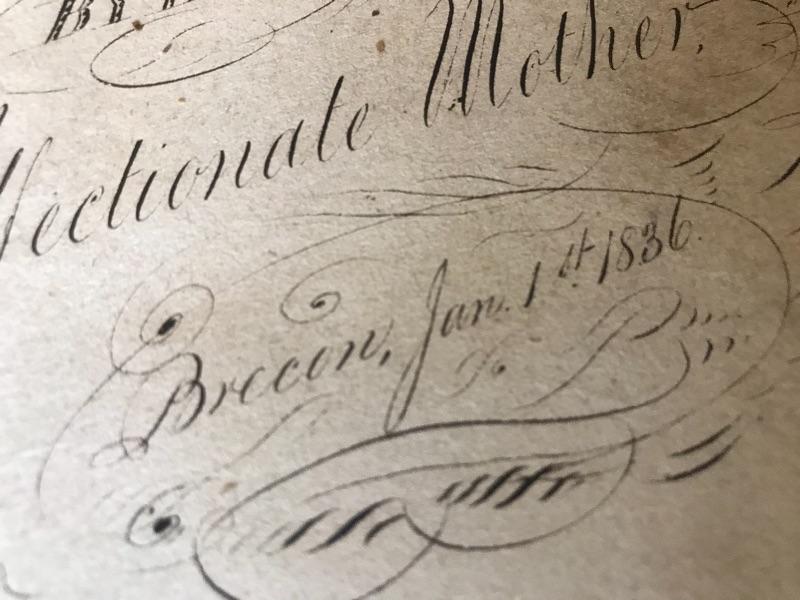 ffectionate Mother.
Brecon, Jan. 1st 1836.